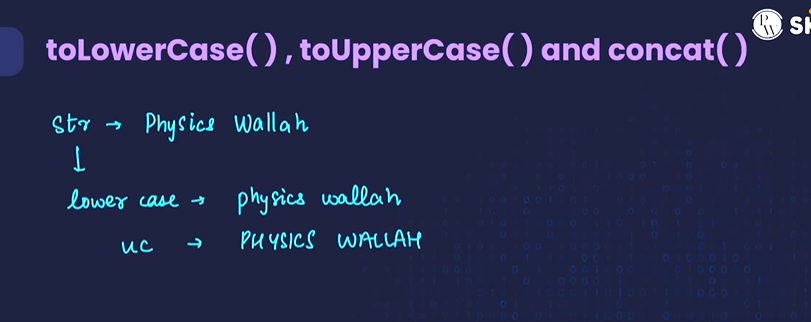 PW SK
toLowerCase() , toUpperCase() and concat()
str → Physics Wallah
↓
lower case → physics wallah
uc → PHYSICS WALLAH